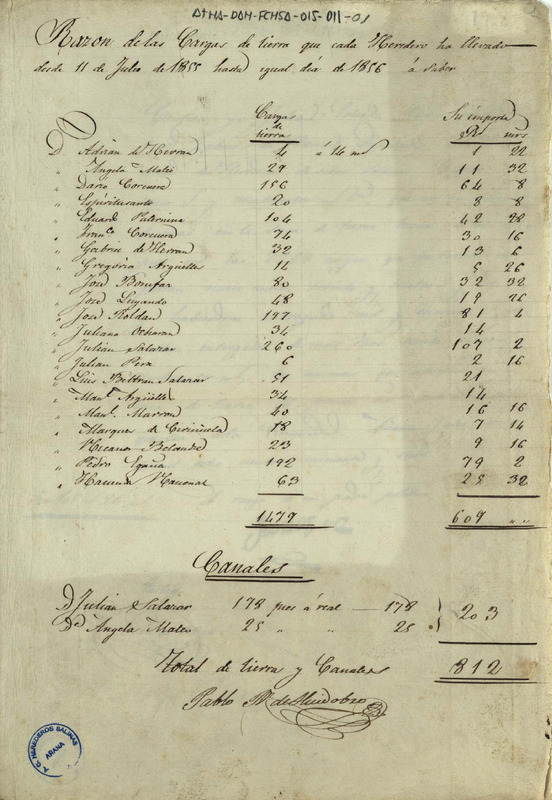 ATHA-DAH-FCHSA-015-011-01
Razon de las Cargas de tierra que cada Heredero ha llevado
desde 11 de Julio de 1855 hasta igual dia de 1856 á saber
Cargas de tierra Su importe
Rs mrs
D Adrian de Herran 4 á 14 ms 1 22
" Angela Mateo 29 11 32
" Dario Corcuera 156 64 8
" Espiritusanto 20 8 8
" Eduardo Paternina 104 42 28
" Franco Corcuera 74 30 16
" Gabriel de Herran 32 13 6
" Gregoria Argüelles 14 5 26
" José Bonifaz 80 32 32
" José Luyando 48 19 26
" José Roldan 197 81 4
" Juliana Ochoran 34 14
" Julian Salazar 260 107 2
" Julian Pera 6 2 16
" Luis Beltran Salazar 51 21
" Manl Argüelles 34 14
" Manl Marron 40 16 16
" Marques de 18 7 14
" 23 9 16
" Pedro Egaña 192 79 2
" Hacienda Nacional 63 25 32
1479 609 " "
Canales
D Julian Salazar 178 pies á real 178 203
Da Angela Mateo 25 " " 25
Total de tierra y Canales 812
Pablo Ma de Huidobro
A. C. HEREDEROS SALINAS
ARANA